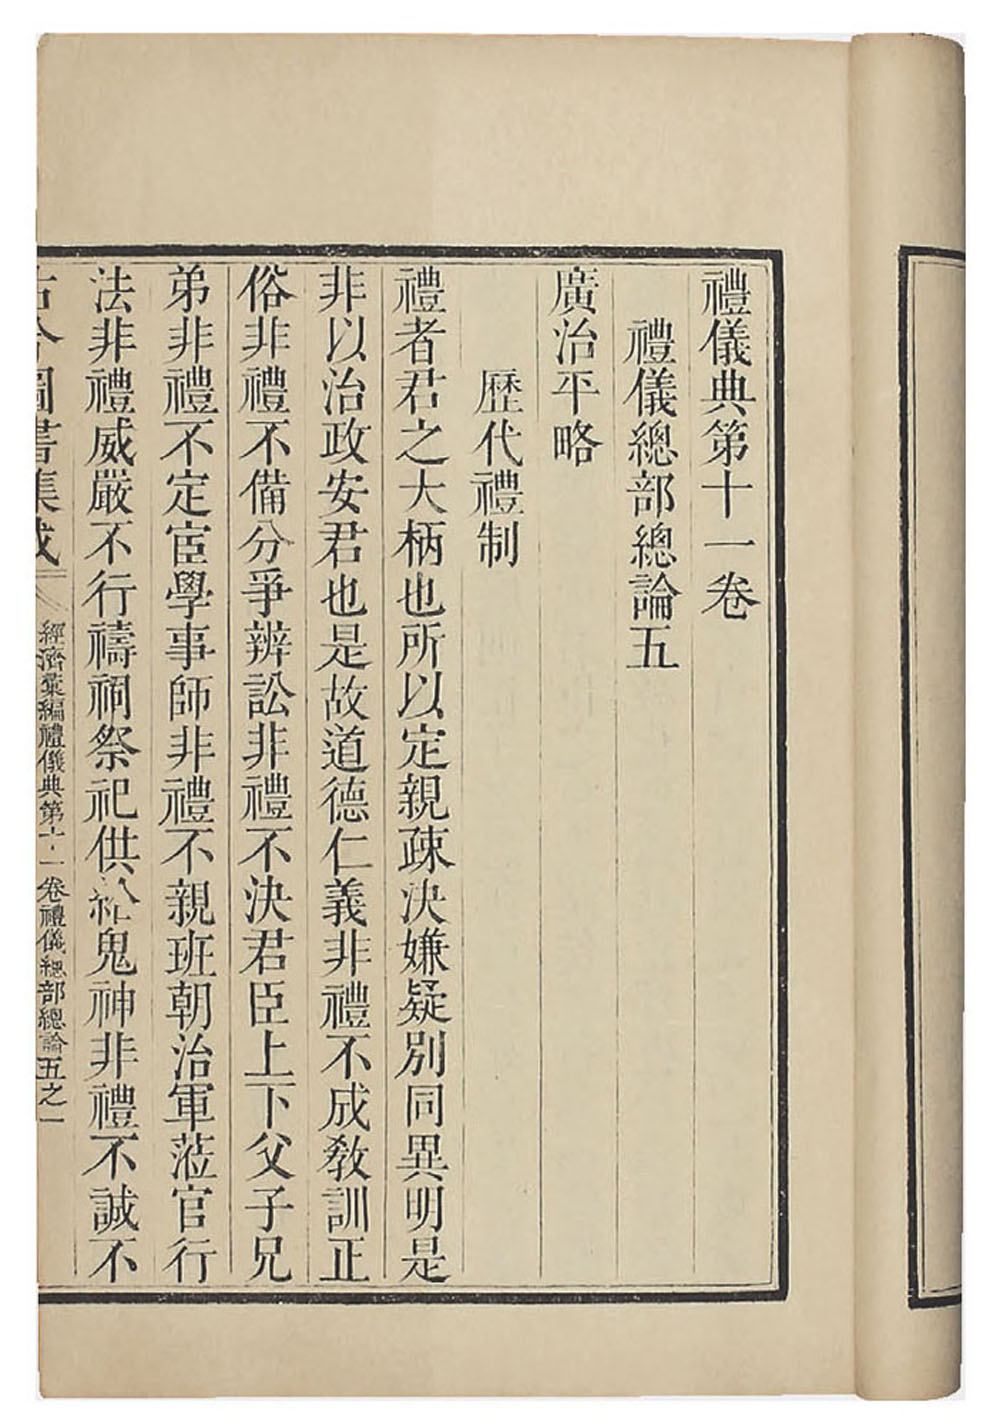 禮儀典第十一卷
禮儀總部總論五
廣治平略
歷代禮制
禮者君之大柄也所以定親疎決嫌疑別同異明是
非以治政安君也是故道德仁義非禮不成敎訓正
俗非禮不備分爭辨訟非禮不決君臣上下父子兄
弟非禮不定宦學事師非禮不親班朝治軍蒞官行
法非禮威嚴不行禱祠祭祀供給鬼神非禮不誠不
古今圖書集成 經濟彙編禮儀典第十一卷禮儀總部總論五之一